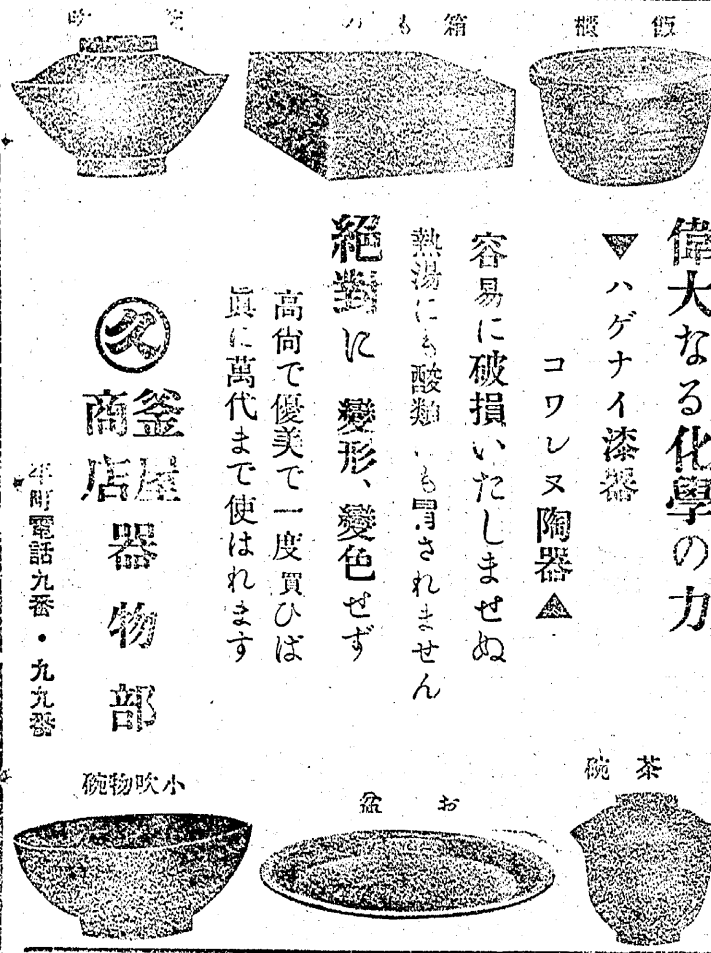 飯櫃
箱もの
偉大なる化學の力
▼ハゲナイ漆器
コワレヌ陶器▲
容易に破損いたしませぬ
熱湯にも酸類にも冒されません
絶對に變形、變色せず
高尙で優美で一度買ひば
眞に萬代まで使はれます
久
釜屋商店器物部
電話九番・九九番
茶碗
お盆
小吹物碗